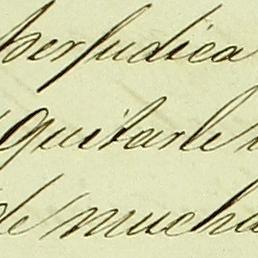 perjudica
quitarle
de mucha